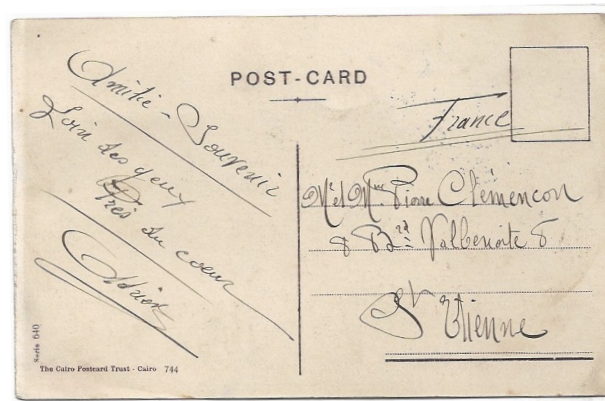 POST-CARD
Amitié - Souvenir
Loin des yeux
Près du coeur
France
Mr et Mme Pierre Clémencon
8 Bd Valbenoite 8
St Etienne
Serie 640
The Cairo Postcard Trust - Cairo 744